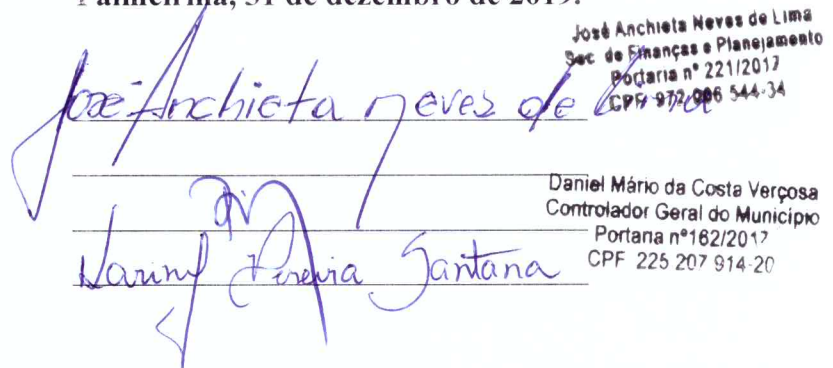 Palmeirina, 31 de dezembro de 2019.
José Anchieta Neves de Lima
Sec de Finanças e Planejamento
Portaria n° 221/2017
CPF 972 006 544-34
José Anchieta neves de Lima
Daniel Mário da Costa Verçosa
Controlador Geral do Município
Portaria nº162/2017
CPF 225 207 914-20
Pereira Santana